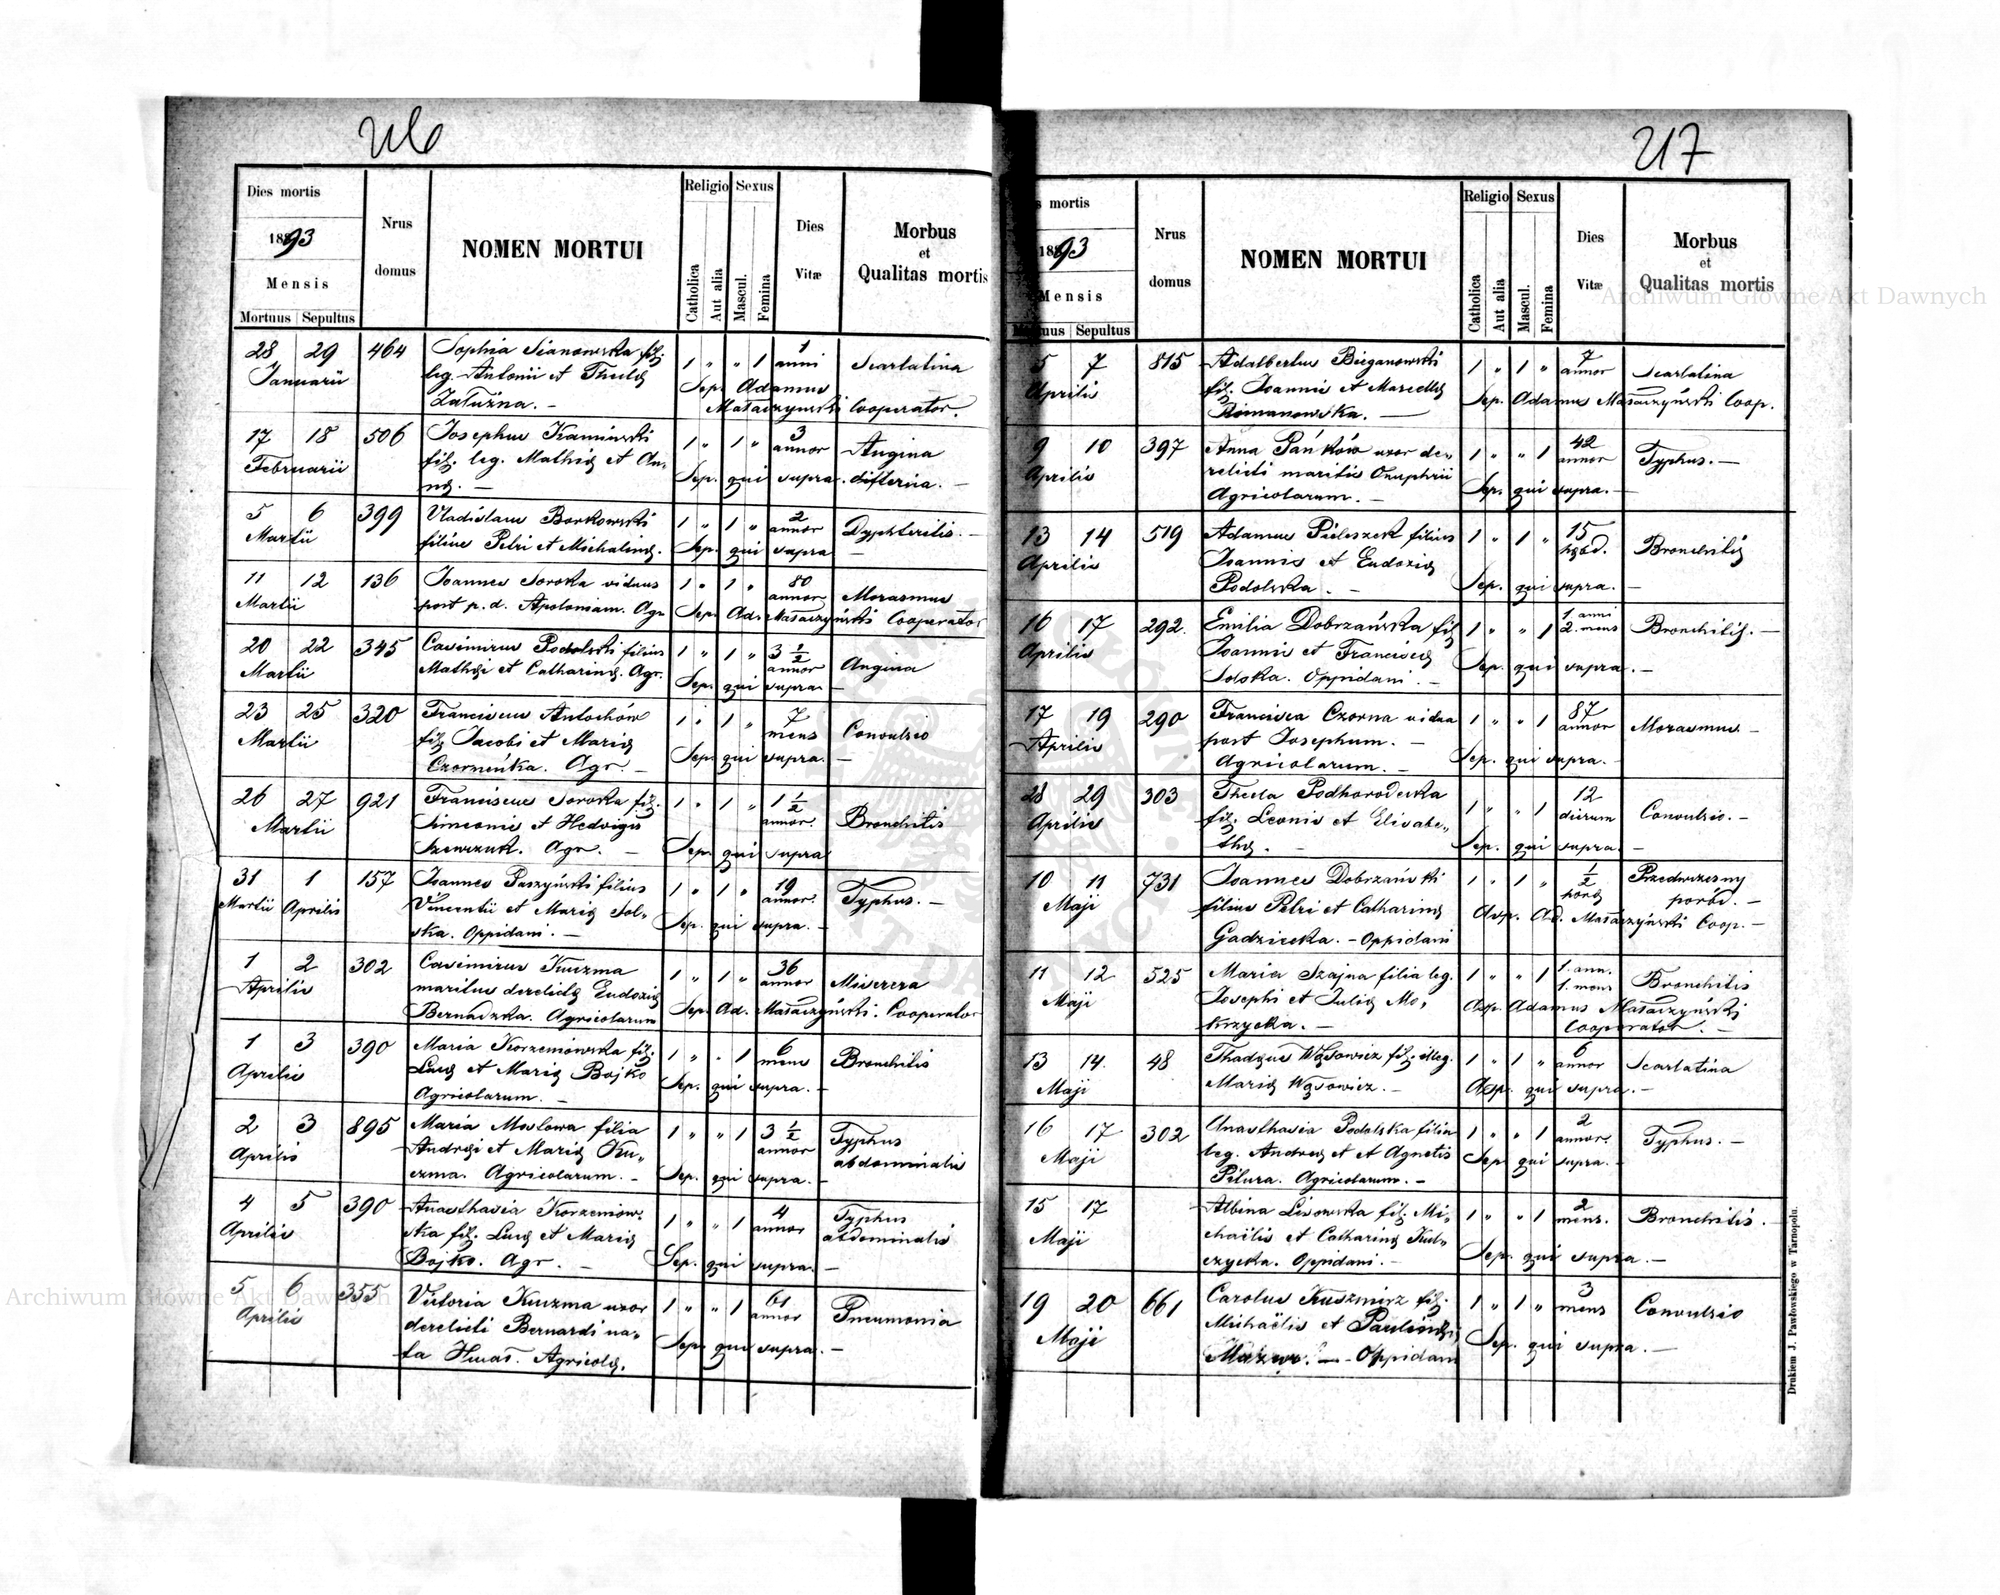 216
Dies mortis
1893
Mensis
Mortuus Sepultus
Nrus
domus
NOMEN MORTUI
Religio Sexus
Catholica
Aut alia
Mascul.
Femina
Dies
Vitæ
Morbus
et
Qualitas mortis
28 29 464 Sophia Sianowska fil. 1 " " 1 1 anni Scarlatina
Januarii leg. Antonii et Theclę Sep. Adamus
Załużna. — Mataczyński Cooperator.
17 18 506 Josephus Kamiński 1 " 1 " 3 annor Angina
Februarii fil. leg. Mathię et An„ Sep. qui supra. difteria. —
nę. —
5 6 399 Vladislaus Borkowski 1 " 1 " 2 annor Dyphteritis. —
Martii filius Petri et Michalinę. Sep. qui supra —
11 12 136 Joannes Soroka viduus 1 " 1 " 80 annor Morasmus
Martii post p. d. Apoloniam. Agr. Sep. Ad. Mataczyński Cooperator
20 22 345 Casimirus Podolski filius 1 " 1 " 3 1/2 annor Angina
Martii Mathęi et Catharinę. Agr. Sep. qui supra —
23 25 320 Franciscus Antochów 1 " 1 " 7 mens Convulsio
Martii fil. Jacobi et Marię Sep. qui supra. —
Czorneńka. Agr. —
26 27 921 Franciscus Soroka fil. 1 " 1 " 1 1/2 annor. Bronchitis
Martii Simeonis et Hedvigis
Szewczuk. Agr. — Sep. qui supra
31 1 157 Joannes Paszyński filius 1 " 1 " 19 annor. Typhus. —
Martii Aprilis Vincentii et Marię Sol„ Sep. qui supra. —
ska. Oppidani. —
1 2 302 Casimirus Kuczma 1 " 1 " 36 annor Miserera
Aprilis maritus derelictę Eudoxię
Bernadzka. Agricolarum Sep. Ad. Mataczyński. Cooperator
1 3 390 Maria Korzeniowska fil. 1 " " 1 6 mens Bronchitis
Aprilis Lucę et Marię Bojko Sep. qui supra. —
Agricolarum. —
2 3 895 Maria Moslowa filia 1 " " 1 3 1/2 annor Typhus
Aprilis Andręi et Marię Ku„ abdominalis
czma. Agricolarum. — Sep. qui supra. —
4 5 390 Anasthasia Korzeniow„ 1 " " 1 4 annor Typhus
Aprilis ska fil. Lucę et Marię abdominalis
Bojko. Agr. — Sep. qui supra. —
5 6 355 Victoria Kuczma uxor 1 " " 1 61 annor Pneumonia
Aprilis derelicti Bernardi na„ Sep. qui supra. —
ta Hnat. Agricolę.
217
s mortis
1893
Mensis
Mortuus Sepultus
Nrus
domus
NOMEN MORTUI
Religio Sexus
Catholica
Aut alia
Mascul.
Femina
Dies
Vitæ
Morbus
et
Qualitas mortis
5 7 815 Adalbertus Bieganowski 1 " 1 " 7 annor Scarlatina
Aprilis fil. Joannis et Marcellę Sep. Adamus Mataczyński Coop.
Romanowska. —
9 10 397 Anna Pańków uxor de„ 1 " " 1 42 annor Typhus. —
Aprilis relicti maritis Onuphrii
Agricolarum. — Sep. qui supra. —
13 14 519 Adamus Pieleszek filius 1 " 1 " 15 hebd. Bronchitis
Aprilis Joannis et Eudoxię
Podolska. — Sep. qui supra. —
16 17 292. Emilia Dobrzańska fil 1 " " 1 1. anni 2. mens Bronchitis. —
Aprilis Joannis et Franciscę Sep. qui supra. —
Solska. Oppidani. —
17 19 290 Francisca Czorna vidua 1 " " 1 87 annor Morasmus —
Aprilis post Josephum. — Sep. qui supra. —
Agricolarum. —
28 29 303 Thecla Podhorodecka 1 " " 1 12 dierum Convulsio. —
Aprilis fil. Leonis et Elisabe„
thę. — Sep. qui supra. —
10 11 731 Joannes Dobrzański 1 " 1 " 1/2 horę Przedwczesny
Maji filius Petri et Catharinę poród. —
Gadzicka. — Oppidani Asp. Ad. Mataczyński Coop. —
11 12 525 Maria Szajna filia leg. 1 " " 1 1. ann. 1. mens Bronchitis
Maji Josephi et Julię Mo„ Asp. Adamus Mataczyński
krzycka. — Cooperator. —
13 14. 48 Thadęus Wąsowicz fil. illeg. 1 " 1 " 6 annor Scarlatina
Maji Marię Wąsowicz. — Asp. qui supra. —
16 17 302 Anasthasia Podolska filia 1 " " 1 2 annor. Typhus. —
Maji leg. Andreę et et Agnetis Sep qui supra. —
Pitura. Agricolarum. —
15 17 Albina Lisowska fil. Mi„ 1 " " 1 2 mens. Bronchitis.
Maji chaëlis et Catharinę Kul„
czycka. Oppidani. — Sep. qui supra. —
19 20 661 Carolus Kuszmirz fil. 1 " 1 " 3 mens Convulsio
Maji Michaëlis et Paulinę Sep. qui supra. —
— Oppidani
Drukiem J. Pawłowskiego w Tarnopolu.
Archiwum Główne Akt Dawnych
Archiwum Główne Akt Dawnych